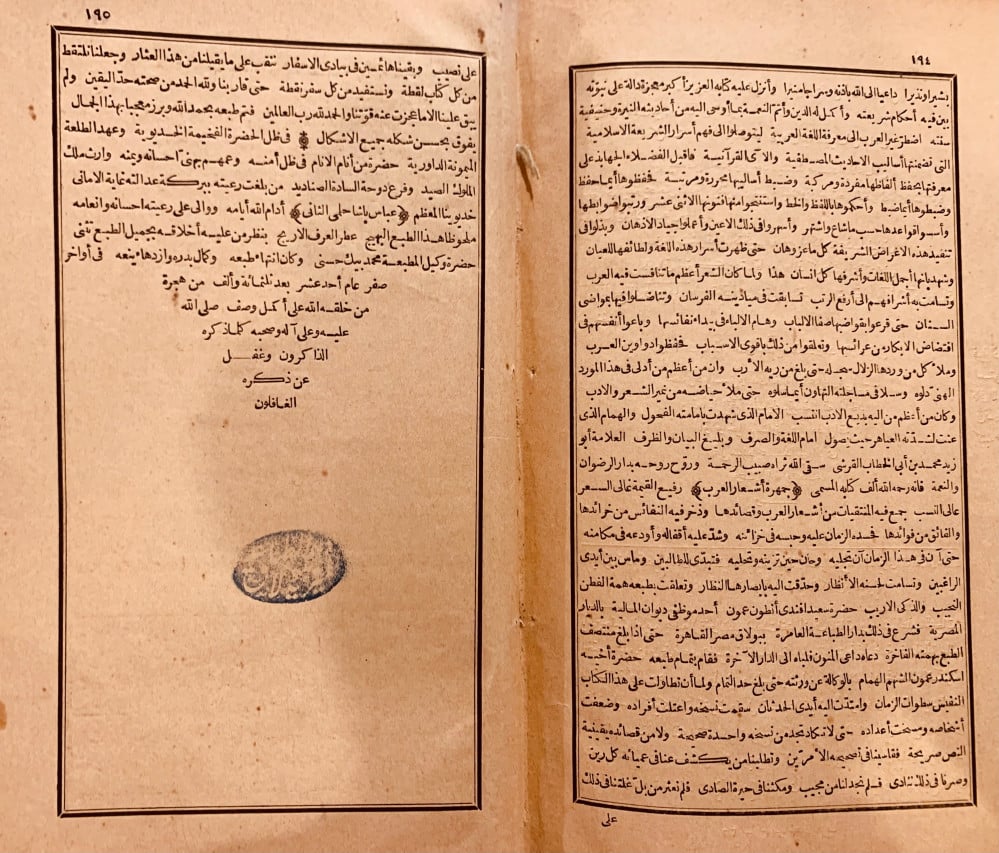 ١٩٤
بشيرا ونذيرا داعيا الى الله باذنه وسراجا منيرا وأنزل عليه كتابه العزيز أكبر معجزة دالة على نبوّته
بين فيه أحكام شريعته وأكمل له الدين وأتم النعمة بما أوحى اليه من أحاديثه النيرة وحنيفية
سنته اضطر غير العرب الى معرفة اللغة العربية ليتوصلوا الى فهم أسرار الشريعة الاسلامية
التى تضمنتها أساليب الاحاديث المصطفية والآى القرآنية فأقبل الفضلاء الجهابذ على
معرفتها بحفظ ألفاظها مفردة ومركبة وضبط أساليبها محررة ومرتبة فحفظوها أيما حفظ
وضبطوها أيما ضبط وأحكموها باللفظ والخط واستنتجوا منها فنونها الاثنى عشر ورتبوا ضوابطها
وأسسوا قواعدها حسب ما شاع واشتهر وأسهروا فى ذلك الاعين وأعملوا جياد الاذهان وبذلوا فى
تنفيذ هذه الاغراض الشريفة كل ما عز وهان حتى ظهرت أسرار هذه اللغة ولطائفها للعيان
وشهد بانها أجل اللغات وأشرفها كل انسان هذا ولما كان الشعر أعظم ما تنافست فيه العرب
وتسامت به أشرافهم الى أرفع الرتب تسابقت فى ميادينه الفرسان وتناضلوا فيها بمواضى
السنان حتى قرعوا بقواضبها صفا الالباب وهام الالباء فى بيداء نفائسها وباعوا أنفسهم فى
اقتضاض الابكار من عرائسها وتعلقوا من ذلك باقوى الاسباب فحفظوا دواوين العرب
وملأ كل من وردها الزلال سجله حتى بلغ من ريه الأرب وان من أعظم من أدلى فى هذا المورد
الهنى دلوه وسلا فى مساجلته التهاون أيما سلوه حتى ملأ حياضه من نمير الشعر والادب
وكان من أعظم من اليه بديع الادب انتسب الامام الذى شهدت بامامته الفحول والهمام الذى
عنت لشدته العباهر حيث يصول امام اللغة والصرف وبليغ البيان والظرف العلامة أبو
زيد محمد بن أبى الخطاب القرشى سقى الله ثراه صبيب الرحمة وروّح روحه بدار الرضوان
والنعمة فانه رحمه الله ألف كتابه المسمى ﴿جمهرة أشعار العرب﴾ رفيع القيمة غالى السعر
عالى النسب جمع فيه المنتقيات من أشعار العرب وقصائدها وذخر فيه النفائس من خرائدها
والفائق من فوائدها فحسده الزمان عليه وحبسه فى خزائنه وشدّ عليه أقفاله وأودعه فى مكامنه
حتى آن فى هذا الزمان آن تجليه وحان حين تزينه وتحليه فتبدّى للطالبين وماس بين أيدى
الراغبين وتسامت لحسنه الأنظار وحدّقت اليه بابصارها النظار وتعلقت بطبعه همة الفطن
النجيب والذكى الاريب حضرة سعيد افندى أنطون عمون أحد موظفى ديوان المالية بالديار
المصرية فشرع فى ذلك بدار الطباعة العامرة ببولاق مصر القاهرة حتى اذا بلغ منتصف
الطبع بهمته الفاخرة دعاه داعى المنون فلباه الى الدار الآخرة فقام بتمام طبعه حضرة أخيه
اسكندر عمون الشهم الهمام بالوكالة عن ورثته حتى بلغ حد التمام ولما أن تطاولت على هذا الكتاب
النفيس سطوات الزمان وامتدّت اليه أيدى الحدثان سقمت نسخه واعتلت أفراده وضعفت
أشخاصه ومسخت أعداده حتى لا تكاد تجد من نسخه واحدة صحيحة ولا من قصائده يقينية
النص صريحة فقاسينا فى تصحيحه الأمرّين وتطلبنا من يكشف عنا فى عمياته كل رين
وصرنا فى ذلك ننادى فلم نجد لنا من مجيب ومكثنا فى حيرة الصادى فلم نعثر من بل غلتنا فى ذلك
على
١٩٥
على نصيب وبقينا هائمين فى بيادى الاسفار ننقب على ما يقيلنا من هذا العثار وجعلنا نلتقط
من كل كتاب لقطة ونستفيد من كل سفر نقطة حتى قاربنا ولله الحمد من صحته حدّ اليقين ولم
يبق علينا الا ما عجزت عنه قوّتنا والحمد لله رب العالمين فتم طبعه بحمد الله وبرز معجبا بهذا الجمال
يفوق بحسن شكله جميع الاشكال فى ظل الحضرة الفخيمة الخديوية وعهد الطلعة
الميمونة الداورية حضرة من أنام الانام فى ظل أمنه وعمهم بهنى احسانه ويمنه وارث ملك
الملوك الصيد وفرع دوحة السادة الصناديد من بلغت رعيته ببركة عدالته غاية الامانى
خديوينا المعظم ﴿عباس باشا حلمى الثانى﴾ أدام الله أيامه ووالى على رعيته احسانه وانعامه
ملحوظا هذا الطبع البهيج عطر العرف الاريج بنظر من عليه أخلاقه بجميل الطبع تثنى
حضرة وكيل المطبعة محمد بيك حسنى وكان انتهاء طبعه وكمال بدره وازدهاء ينعه فى أواخر
صفر عام أحد عشر بعد ثلثمائة وألف من هجرة
من خلقه الله على أكمل وصف صلى الله
عليه وعلى آله وصحبه كلما ذكره
الذاكرون وغفل
عن ذكره
الغافلون